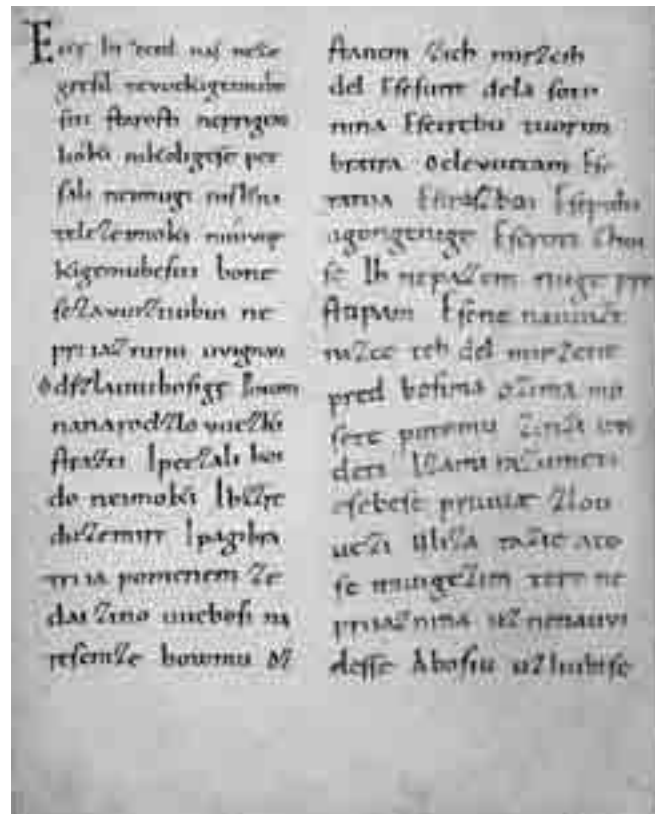 Ecce bi detd naſ neze
greſil tevuekigemube
ſiti ſtaroſti neprigem
lióki nikoligeſe pet
ſali neimugi niſlzna
telezeimoki nuúvuę
kigemubeſiti bone
ſezavuiztiubui ne
priiazninu uvignan
Odſzlauuiboſige Potom
nanarodzlovuezki
ſtraſti Ipetzali boi
do neimoki Ibzzre
duzemirt Ipagibra
triia pomenem ze
dai zino uueboſi na
reſemze botomu oz
ſtanem zich mirzcih
del Eſeſunt dela ſoto
nina Eſetrebu tuorim
bratra oclevuetam Eſe
tatua Eſerazboi Eſepulti
ugongenige Eſeroti Choi
ſe Ih nepazem nuge pre
ſtopam Eſene nauuiz
nizce teh del mirzene
pred boſima ozima mo
ſete potomu zinzi uvi
deti Izami razumeti
eſebeſe priuuae zlou
uezi Uliza tazie aco
ſe mi igezim tere ne
priiaznina uznenauvi
deſſe Aboſiu uzliubiſe